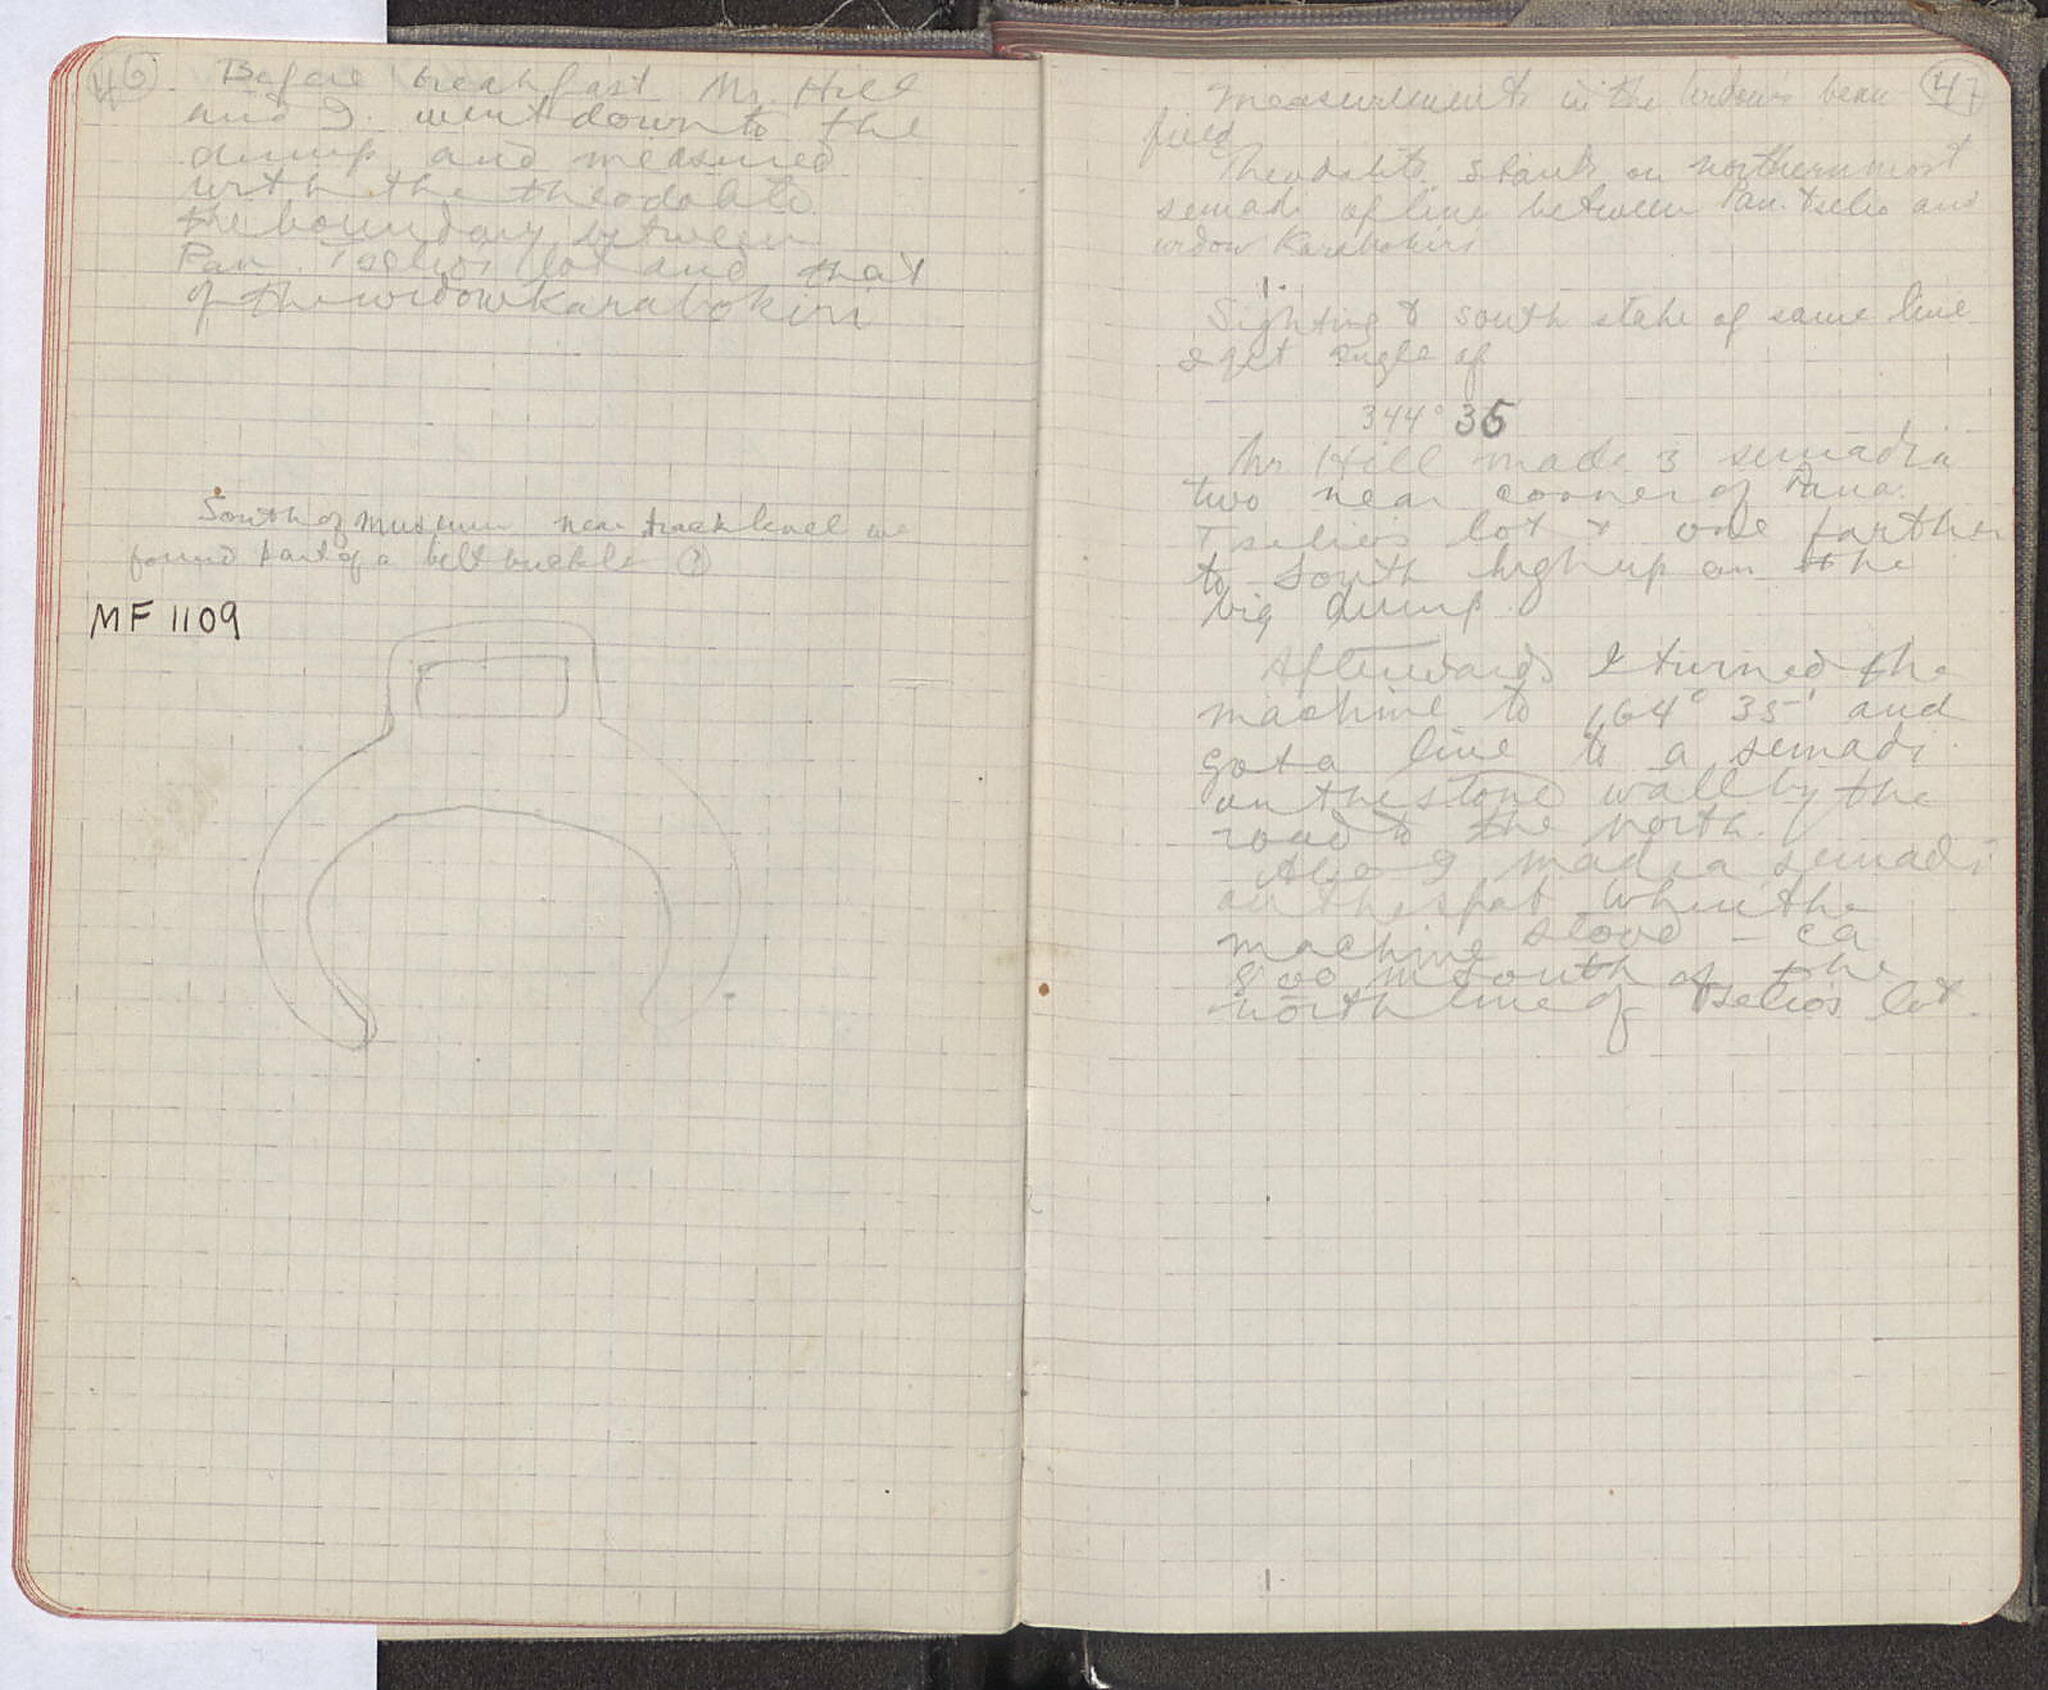 46
Before breakfast Mr. Hill
and I. went down to the
dump and measured
with the theodolite
the boundary between
Pan. Tselios lot and that
of the widow Karabokiri
South of museum near track level we
found part of a belt buckle (?)
MF 1109
47
Measurements in the widow's bean
field
Theodolite stands on northernmost
semadi of line between Pan. Tselio and
widow Karabokiri
1.
Sighting to south stake of same line
I get angle of
344° 35
Mr Hill made 3 semadia
two near corner of Pana.
Tselios lot & one farther
to South high up on the
big dump.
Afterwards I turned the
machine to 164° 35' and
got a line to a semadi
on the stone wall by the
road to the north.
Also I made a semadi
on the spot where the
machine stood – ca
8.00 m south of the
north line of Tselios lot.